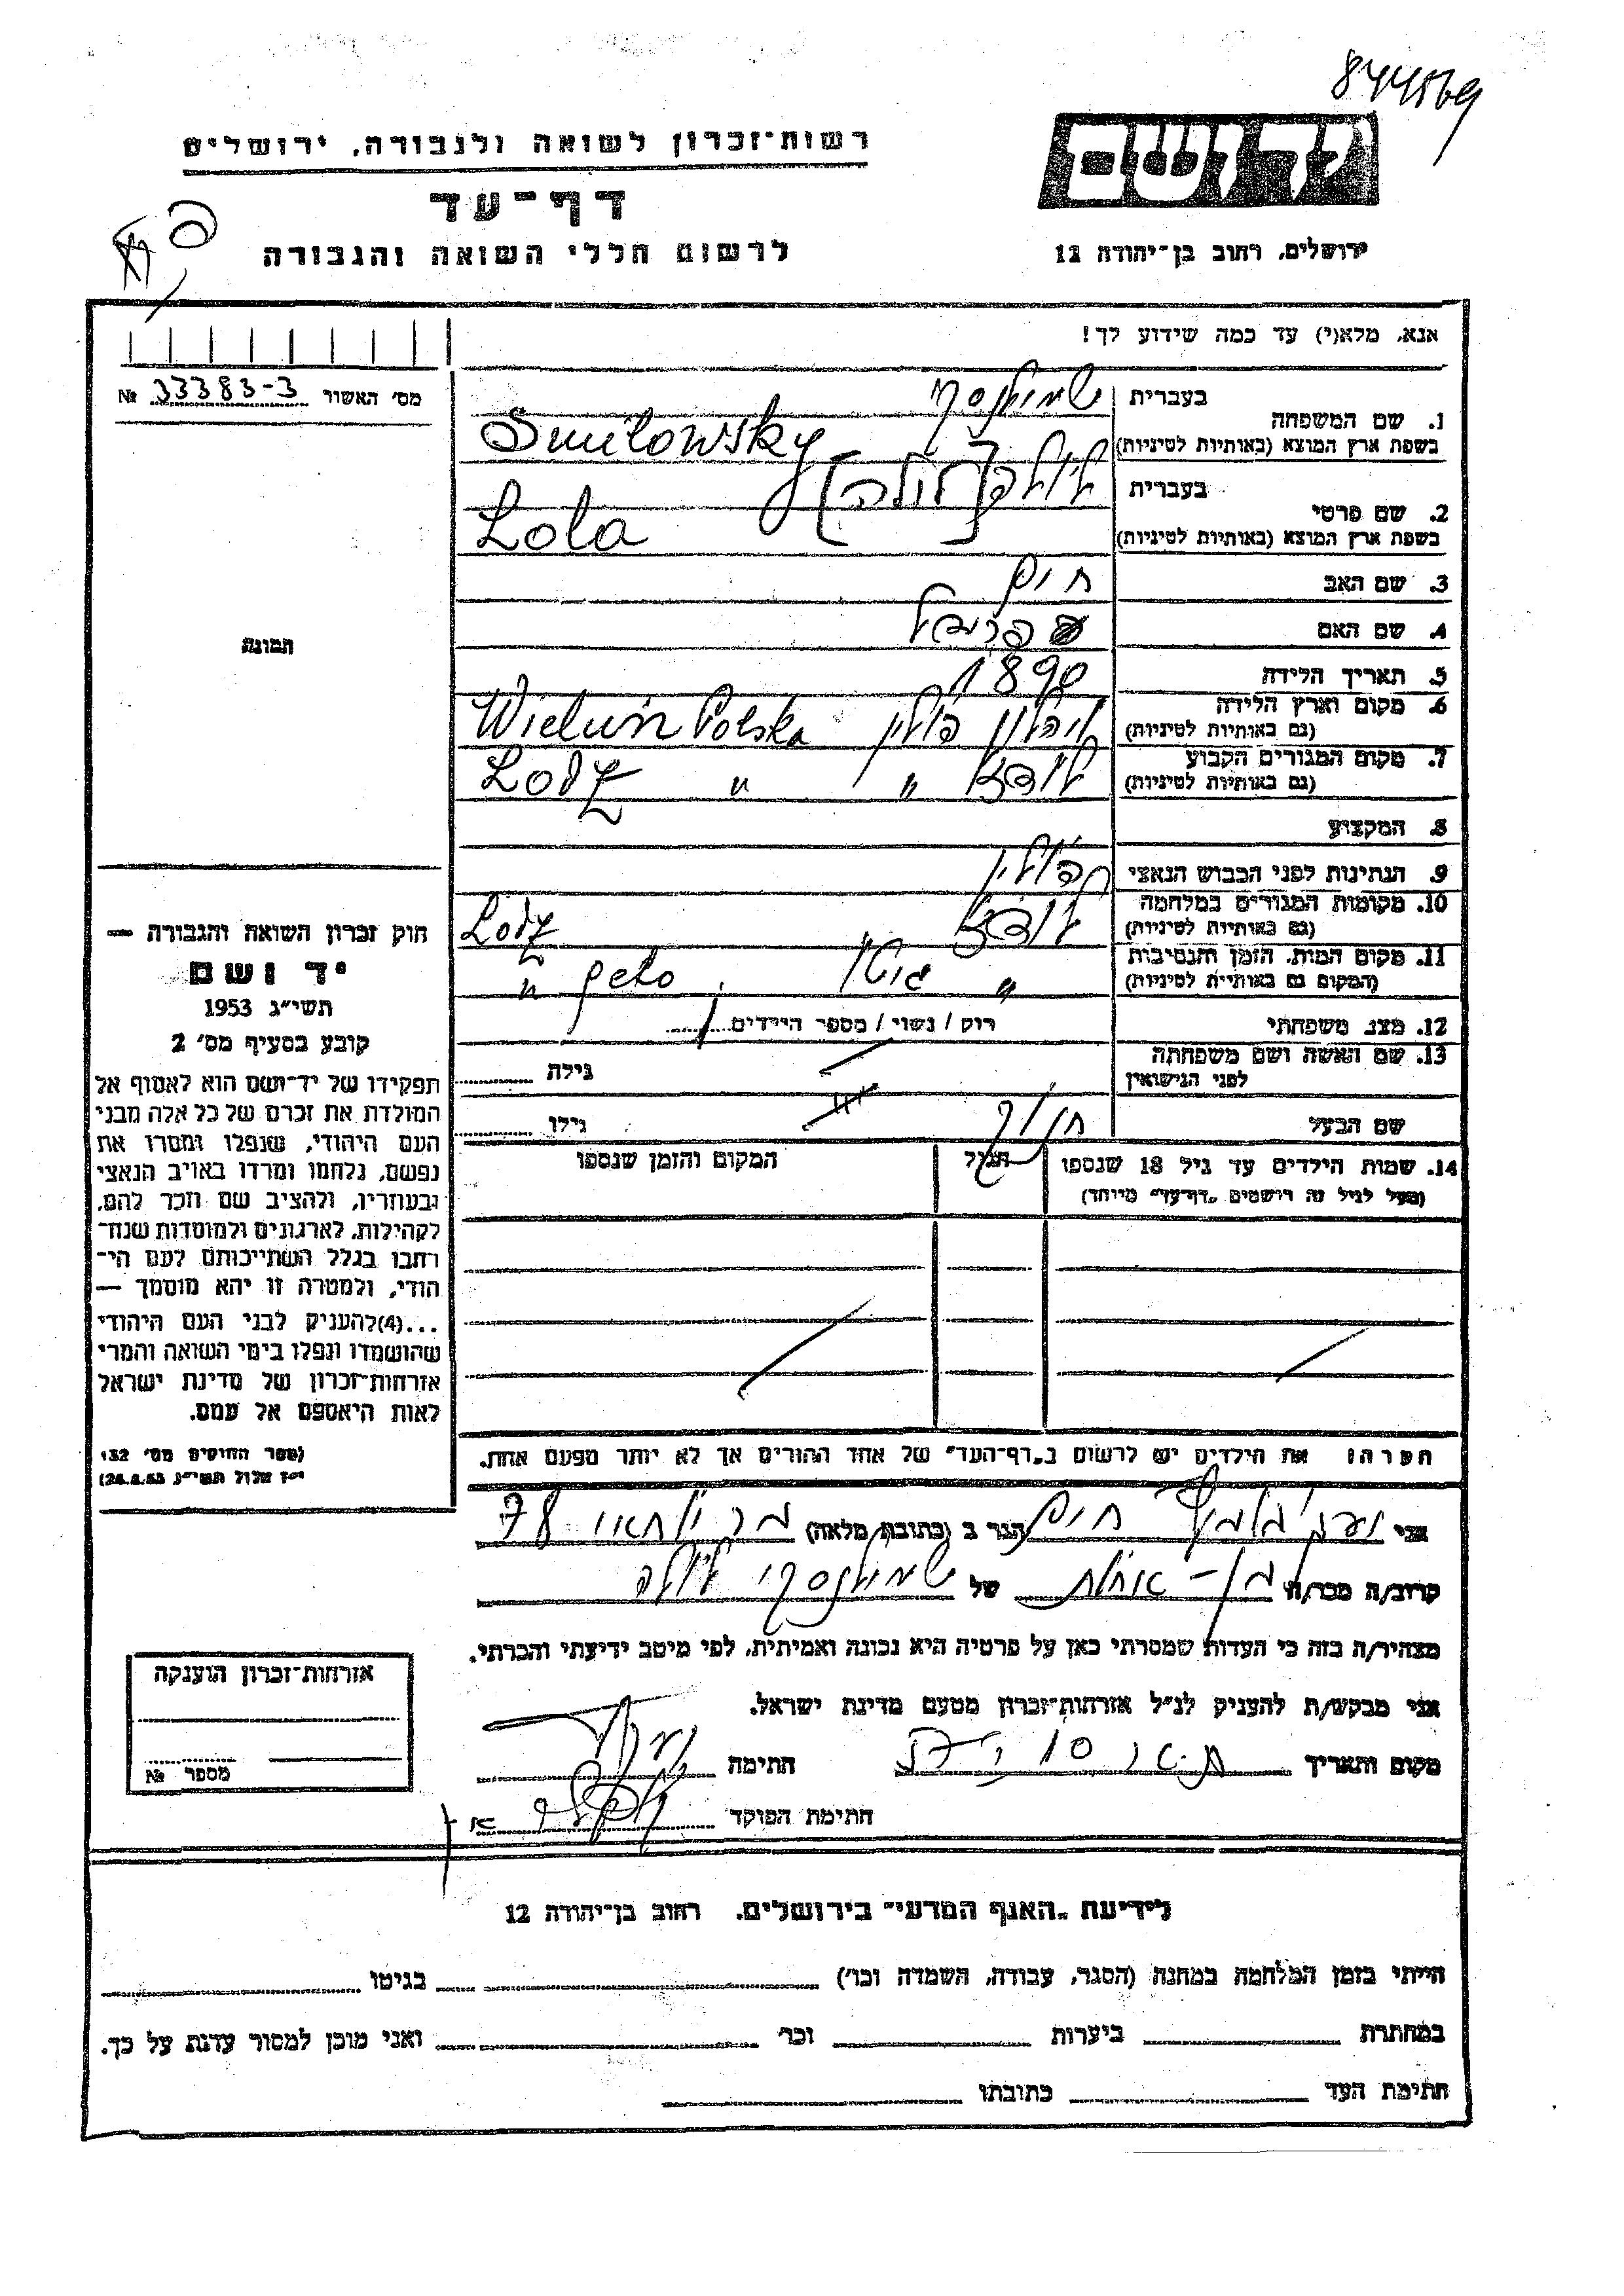 844569
רשות־זכרון לשואה ולגבורה, ירושלים
דף־עד
לרשום חללי השואה והגבורה
ירושלים, רחוב בן־יהודה 12
אנא, מלא(י) עד כמה שידוע לך!
מס׳ האשור 33383-3 №
1. שם המשפחה בעברית
בשפת ארץ המוצא (באותיות לטיניות) Smilowsky
2. שם פרטי בעברית [לולה]
בשפת ארץ המוצא (באותיות לטיניות) Lola
3. שם האב חיים
4. שם האם
5. תאריך הלידה 1890
6. מקום וארץ הלידה (גם באותיות לטיניות) פולין Wieluń Polska
7. מקום המגורים הקבוע (גם באותיות לטיניות) לודז " Lodz "
8. המקצוע
9. הנתינות לפני הכבוש הנאצי פולין
10. מקומות המגורים במלחמה (גם באותיות לטיניות) לודז Lodz
11. מקום המות, הזמן והנסיבות (המקום גם באותיות לטיניות) " גיטו " geto
12. מצב משפחתי רוק / נשוי / מספר הילדים
13. שם האשה ושם משפחתה לפני הנישואין גילה
שם הבעל גילו
14. שמות הילדים עד גיל 18 שנספו הגיל המקום והזמן שנספו
(מעל לגיל זה רושמים „דף־עד״ מיוחד)
הערה: את הילדים יש לרשום ב„דף־העד״ של אחד ההורים אך לא יותר מפעם אחת.
תמונה
חוק זכרון השואה והגבורה —
יד ושם
תשי״ג 1953
קובע בסעיף מס׳ 2
תפקידו של יד־ושם הוא לאסוף אל
המולדת את זכרם של כל אלה מבני
העם היהודי, שנפלו ומסרו את
נפשם, נלחמו ומרדו באויב הנאצי
ובעוזריו, ולהציב שם וזכר להם,
לקהילות, לארגונים ולמוסדות שנח־
רבו בגלל השתייכותם לעם הי־
הודי, ולמטרה זו יהא מוסמך —
...(4)להעניק לבני העם היהודי
שהושמדו ונפלו בימי השואה והמרי
אזרחות־זכרון של מדינת ישראל
לאות היאספם אל עמם.
(ספר החוקים מס׳ 132
י״ז אלול תשי״ג 28.8.53)
אני חיים הגר ב (כתובת מלאה)
קרוב/ה מכר/ה בן־אחות של
מצהיר/ה בזה כי העדות שמסרתי כאן על פרטיה היא נכונה ואמיתית, לפי מיטב ידיעתי והכרתי.
אני מבקש/ת להעניק לנ״ל אזרחות־זכרון מטעם מדינת ישראל.
מקום ותאריך חתימה
חתימת הפוקד
אזרחות־זכרון הוענקה
מספר №
לידיעת „האגף המדעי״ בירושלים, רחוב בן־יהודה 12
הייתי בזמן המלחמה במחנה (הסגר, עבודה, השמדה וכו׳) בגיטו
במחתרת ביערות וכו׳ ואני מוכן למסור עדות על כך.
חתימת העד כתובתו